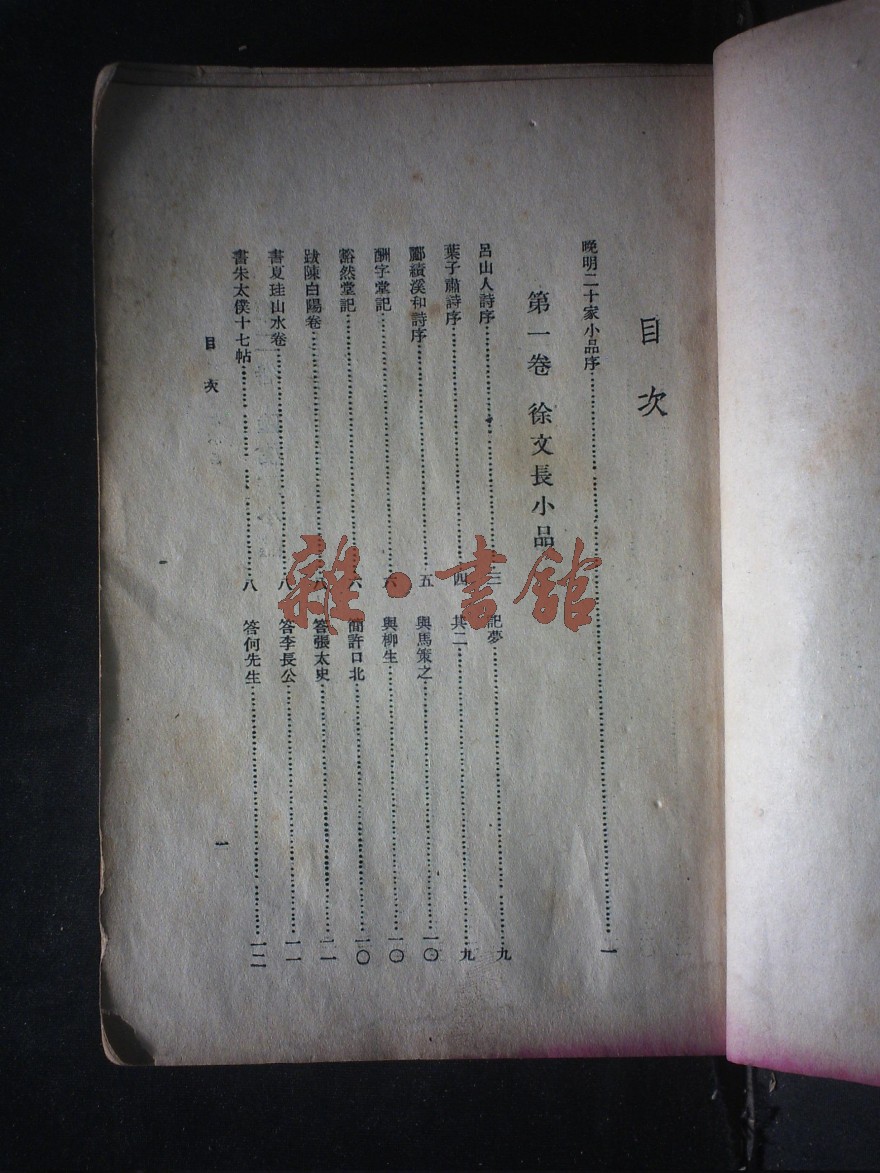 目次
晚明二十家小品序……一
第一卷 徐文長小品
呂山人詩序……三
記夢……九
葉子肅詩序……四
其二……九
酈績溪和詩序……五
與馬策之……一〇
酬字堂記……六
與柳生……一〇
豁然堂記……六
簡許口北……一〇
跋陳白陽卷……八
答張太史……一一
書夏珪山水卷……八
答李長公……一一
書朱太僕十七帖……八
答何先生……一二
目次
一
雜·書館